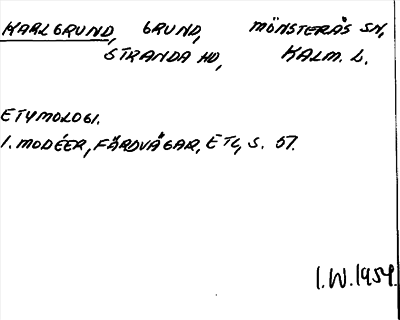 KARLGRUND, GRUND, MÖNSTERÅS SN,
STRANDA HD, KALM. L.
ETYMOLOGI.
I. MODÉER, FÄRDVÄGAR, ETC, S. 57.
I.W.1954.